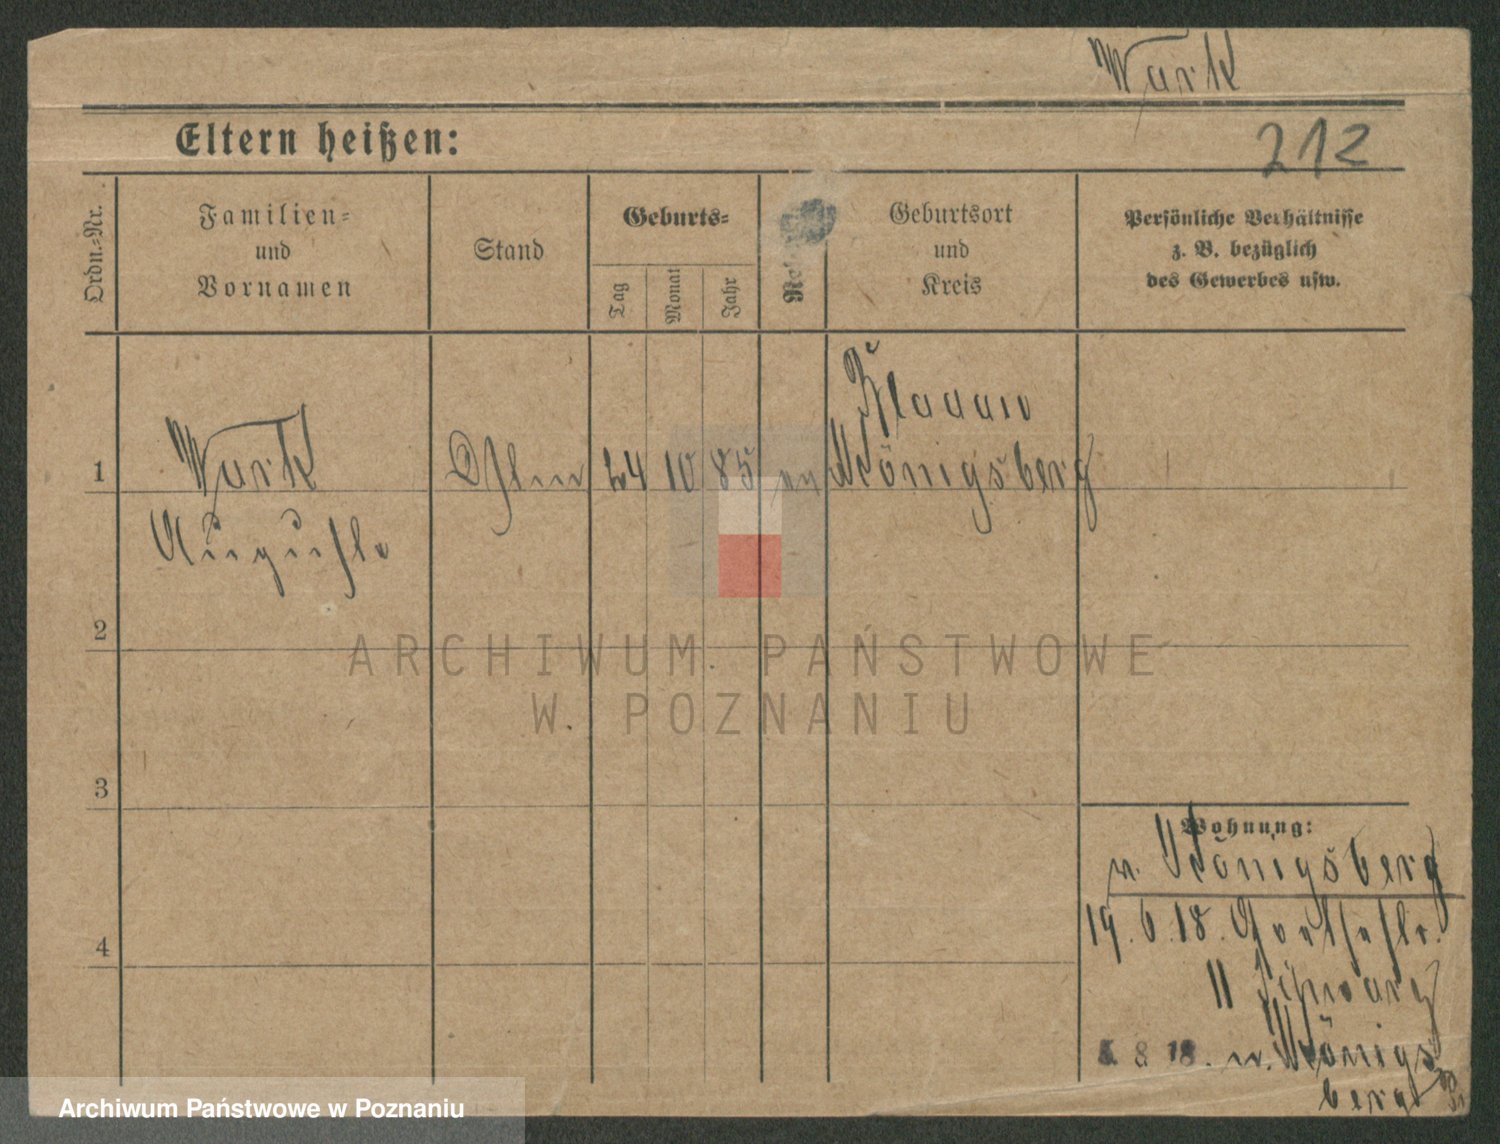 Wurk
Eltern heißen:
212
Ordn.-Nr.
Familien-
und
Vornamen
Stand
Geburts-
Tag
Monat
Jahr
Geburtsort
und
Kreis
Persönliche Verhältnisse
z. B. bezüglich
des Gewerbes usw.
1
Wurk
24 10 85
Königsberg
Auguste
2
3
4
Wohnung:
n. Königsberg
19.6.18. Goethestr.
11 Schwarz
5 8 18. n. Königs
berg
ARCHIWUM PAŃSTWOWE
W POZNANIU
Archiwum Państwowe w Poznaniu